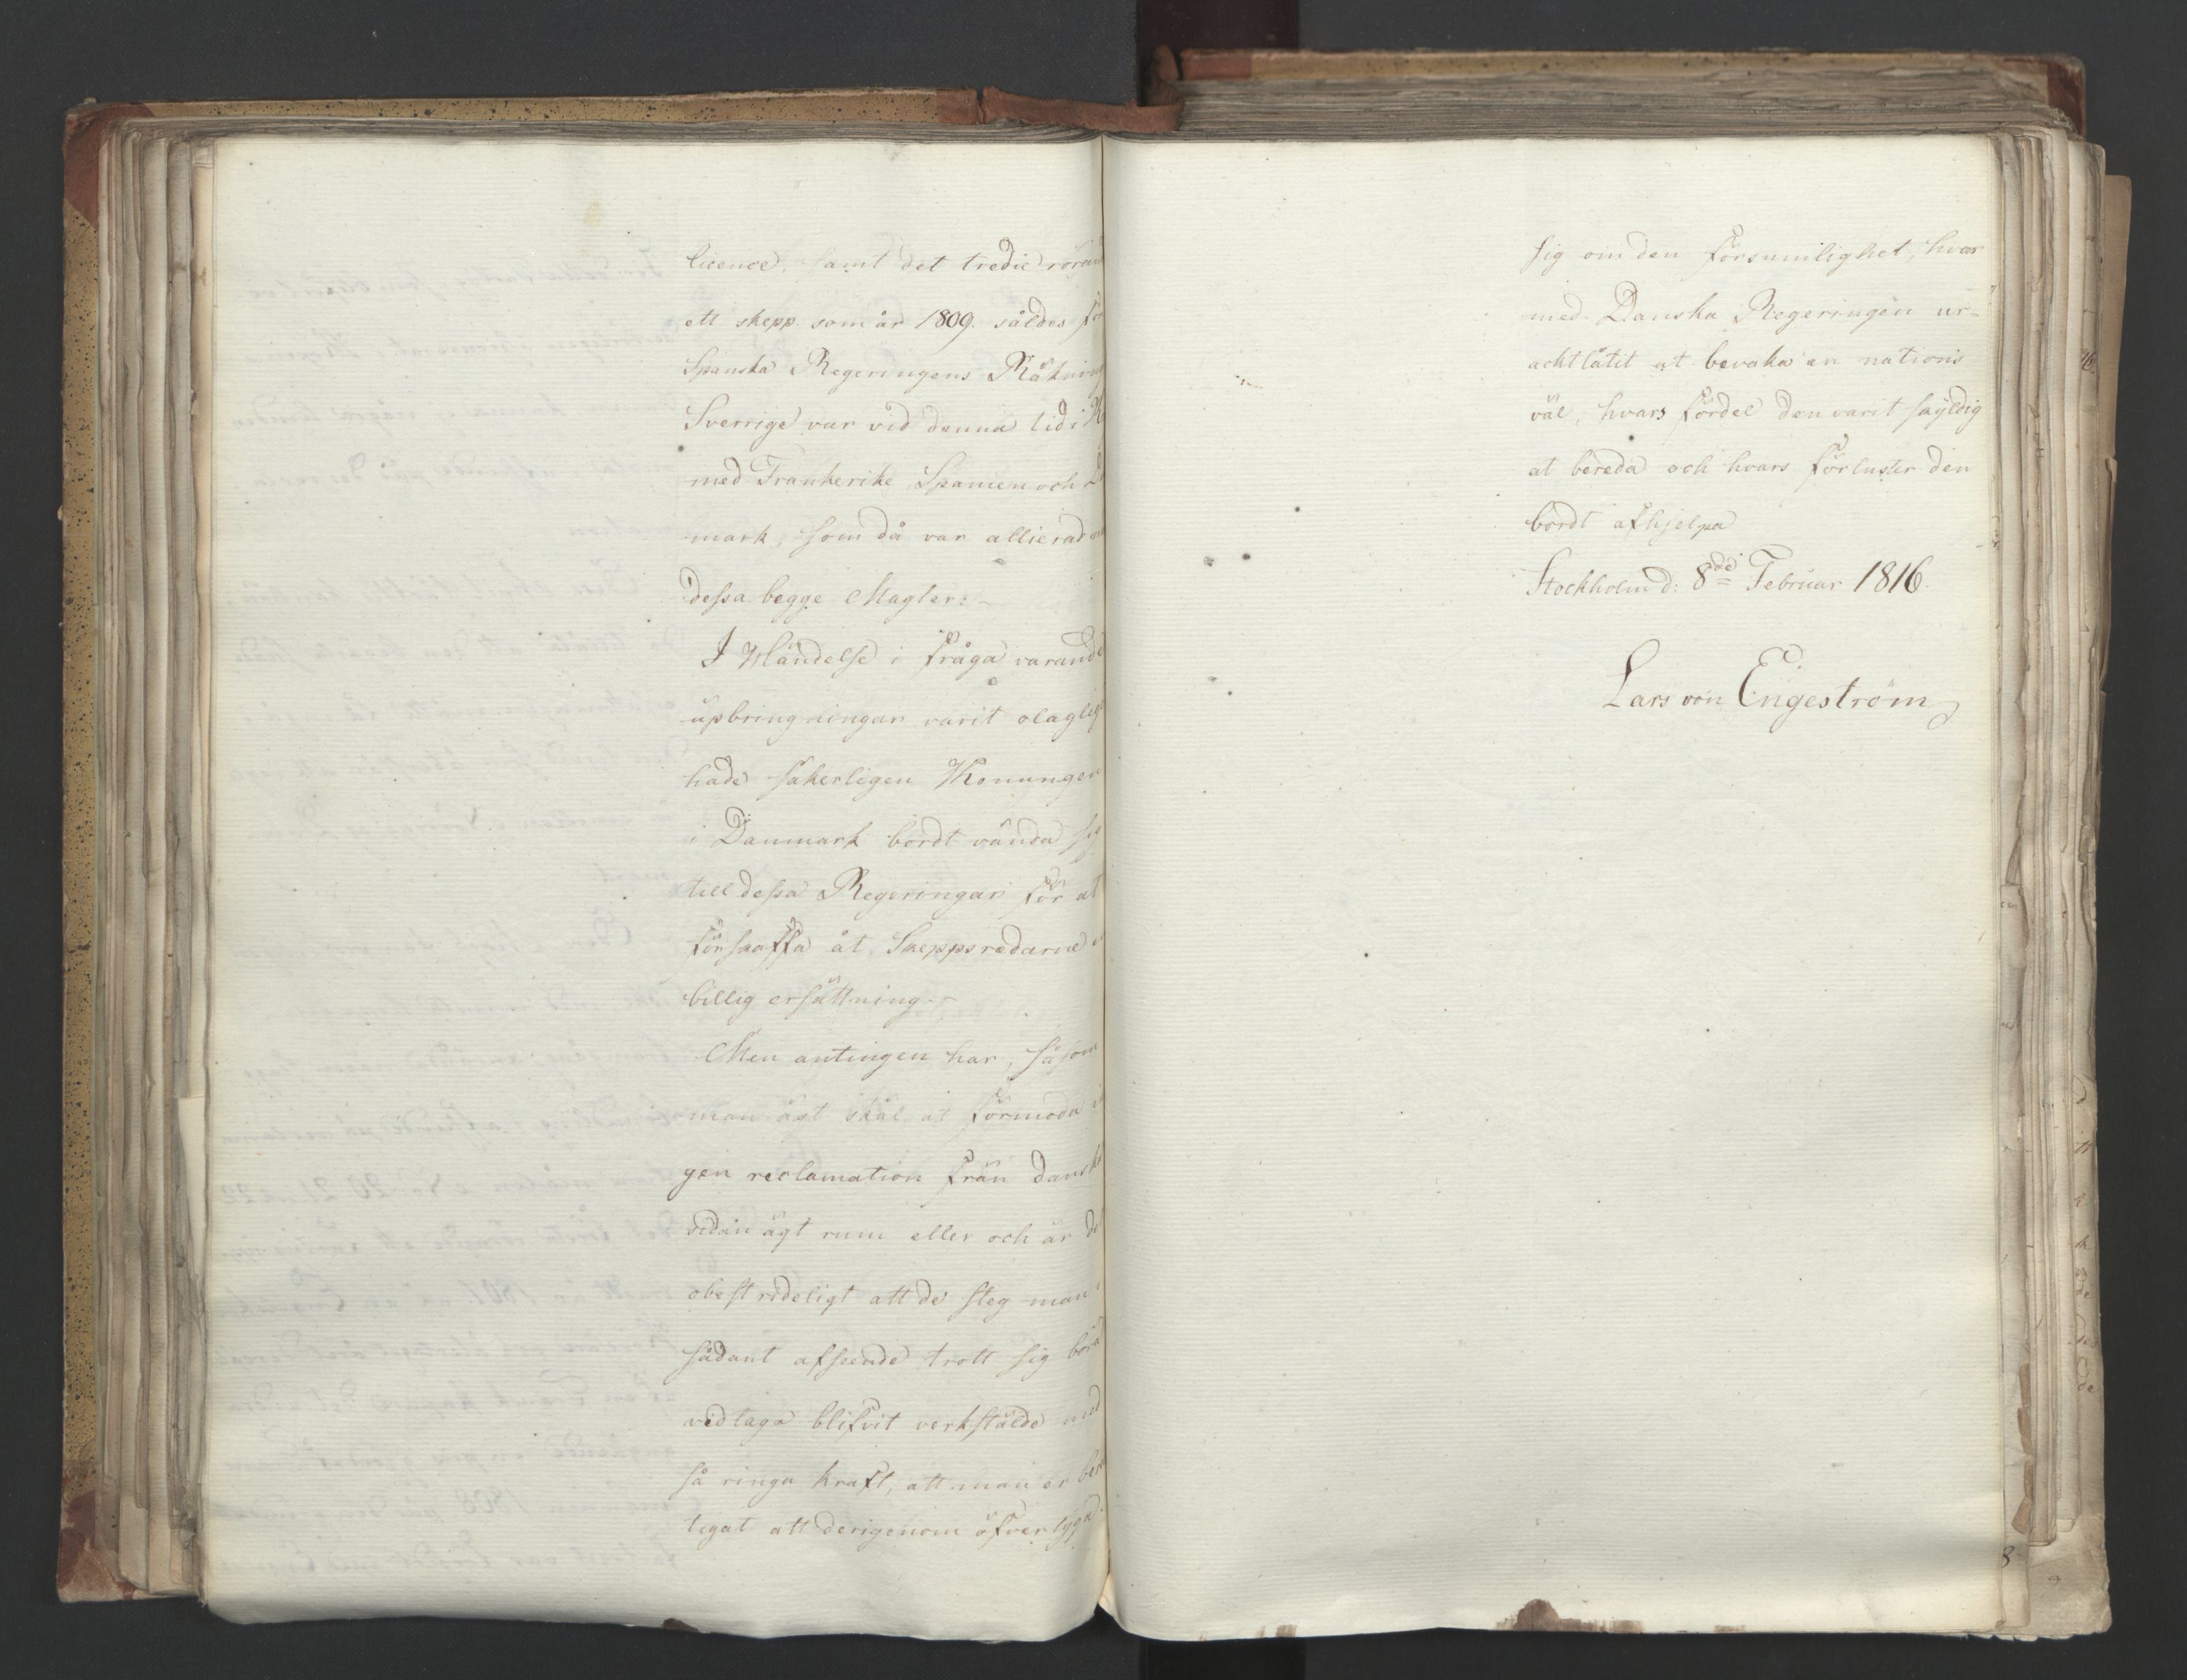 licence, samt det tredie röran
ett skepp som år 1809. såldes för
Spanska Regeringens Räkning
Sverrige var vid denna tid i K
med Frankerike Spanien och D
mark, som då var allierad
dessa begge Magter.-
I Händelse i fråga varande
upbringningar varit olaglige
hade säkerligen Konungen
i Danmark bordt vända sig
till dessa Regeringar för at
förskaffa åt Skeppsredarne
billig ersättning.-
Men antingen har, såsom
man ägt skäl at förmoda
gen reclamation från danska
sidan ägt rum eller och är de
obestrideligt att de steg man
sådant afseende trott sig böra
vidtaga blifvit verkstälde med
så ringa kraft, att man er ber
tigat att derigenom öfvertyga
sig om den försumlighet, hvar
med Danska Regeringen ur-
acktlåtit at bevaka en nations
väl, hvars fördel den varit skyldig
at bereda och hvars förluster den
bordt afhjelpa
Stockholm d: 8de Februar 1816.
Lars von Engeström
8